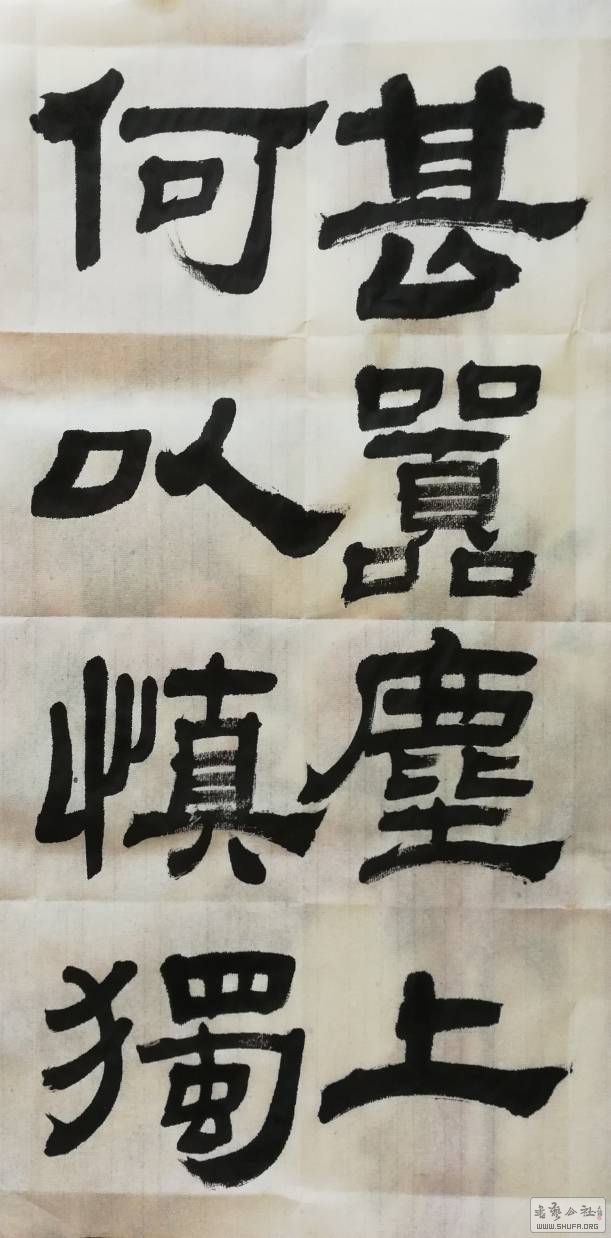 甚嚣塵上
何以慎獨
書藝公社
WWW.SHUFA.ORG